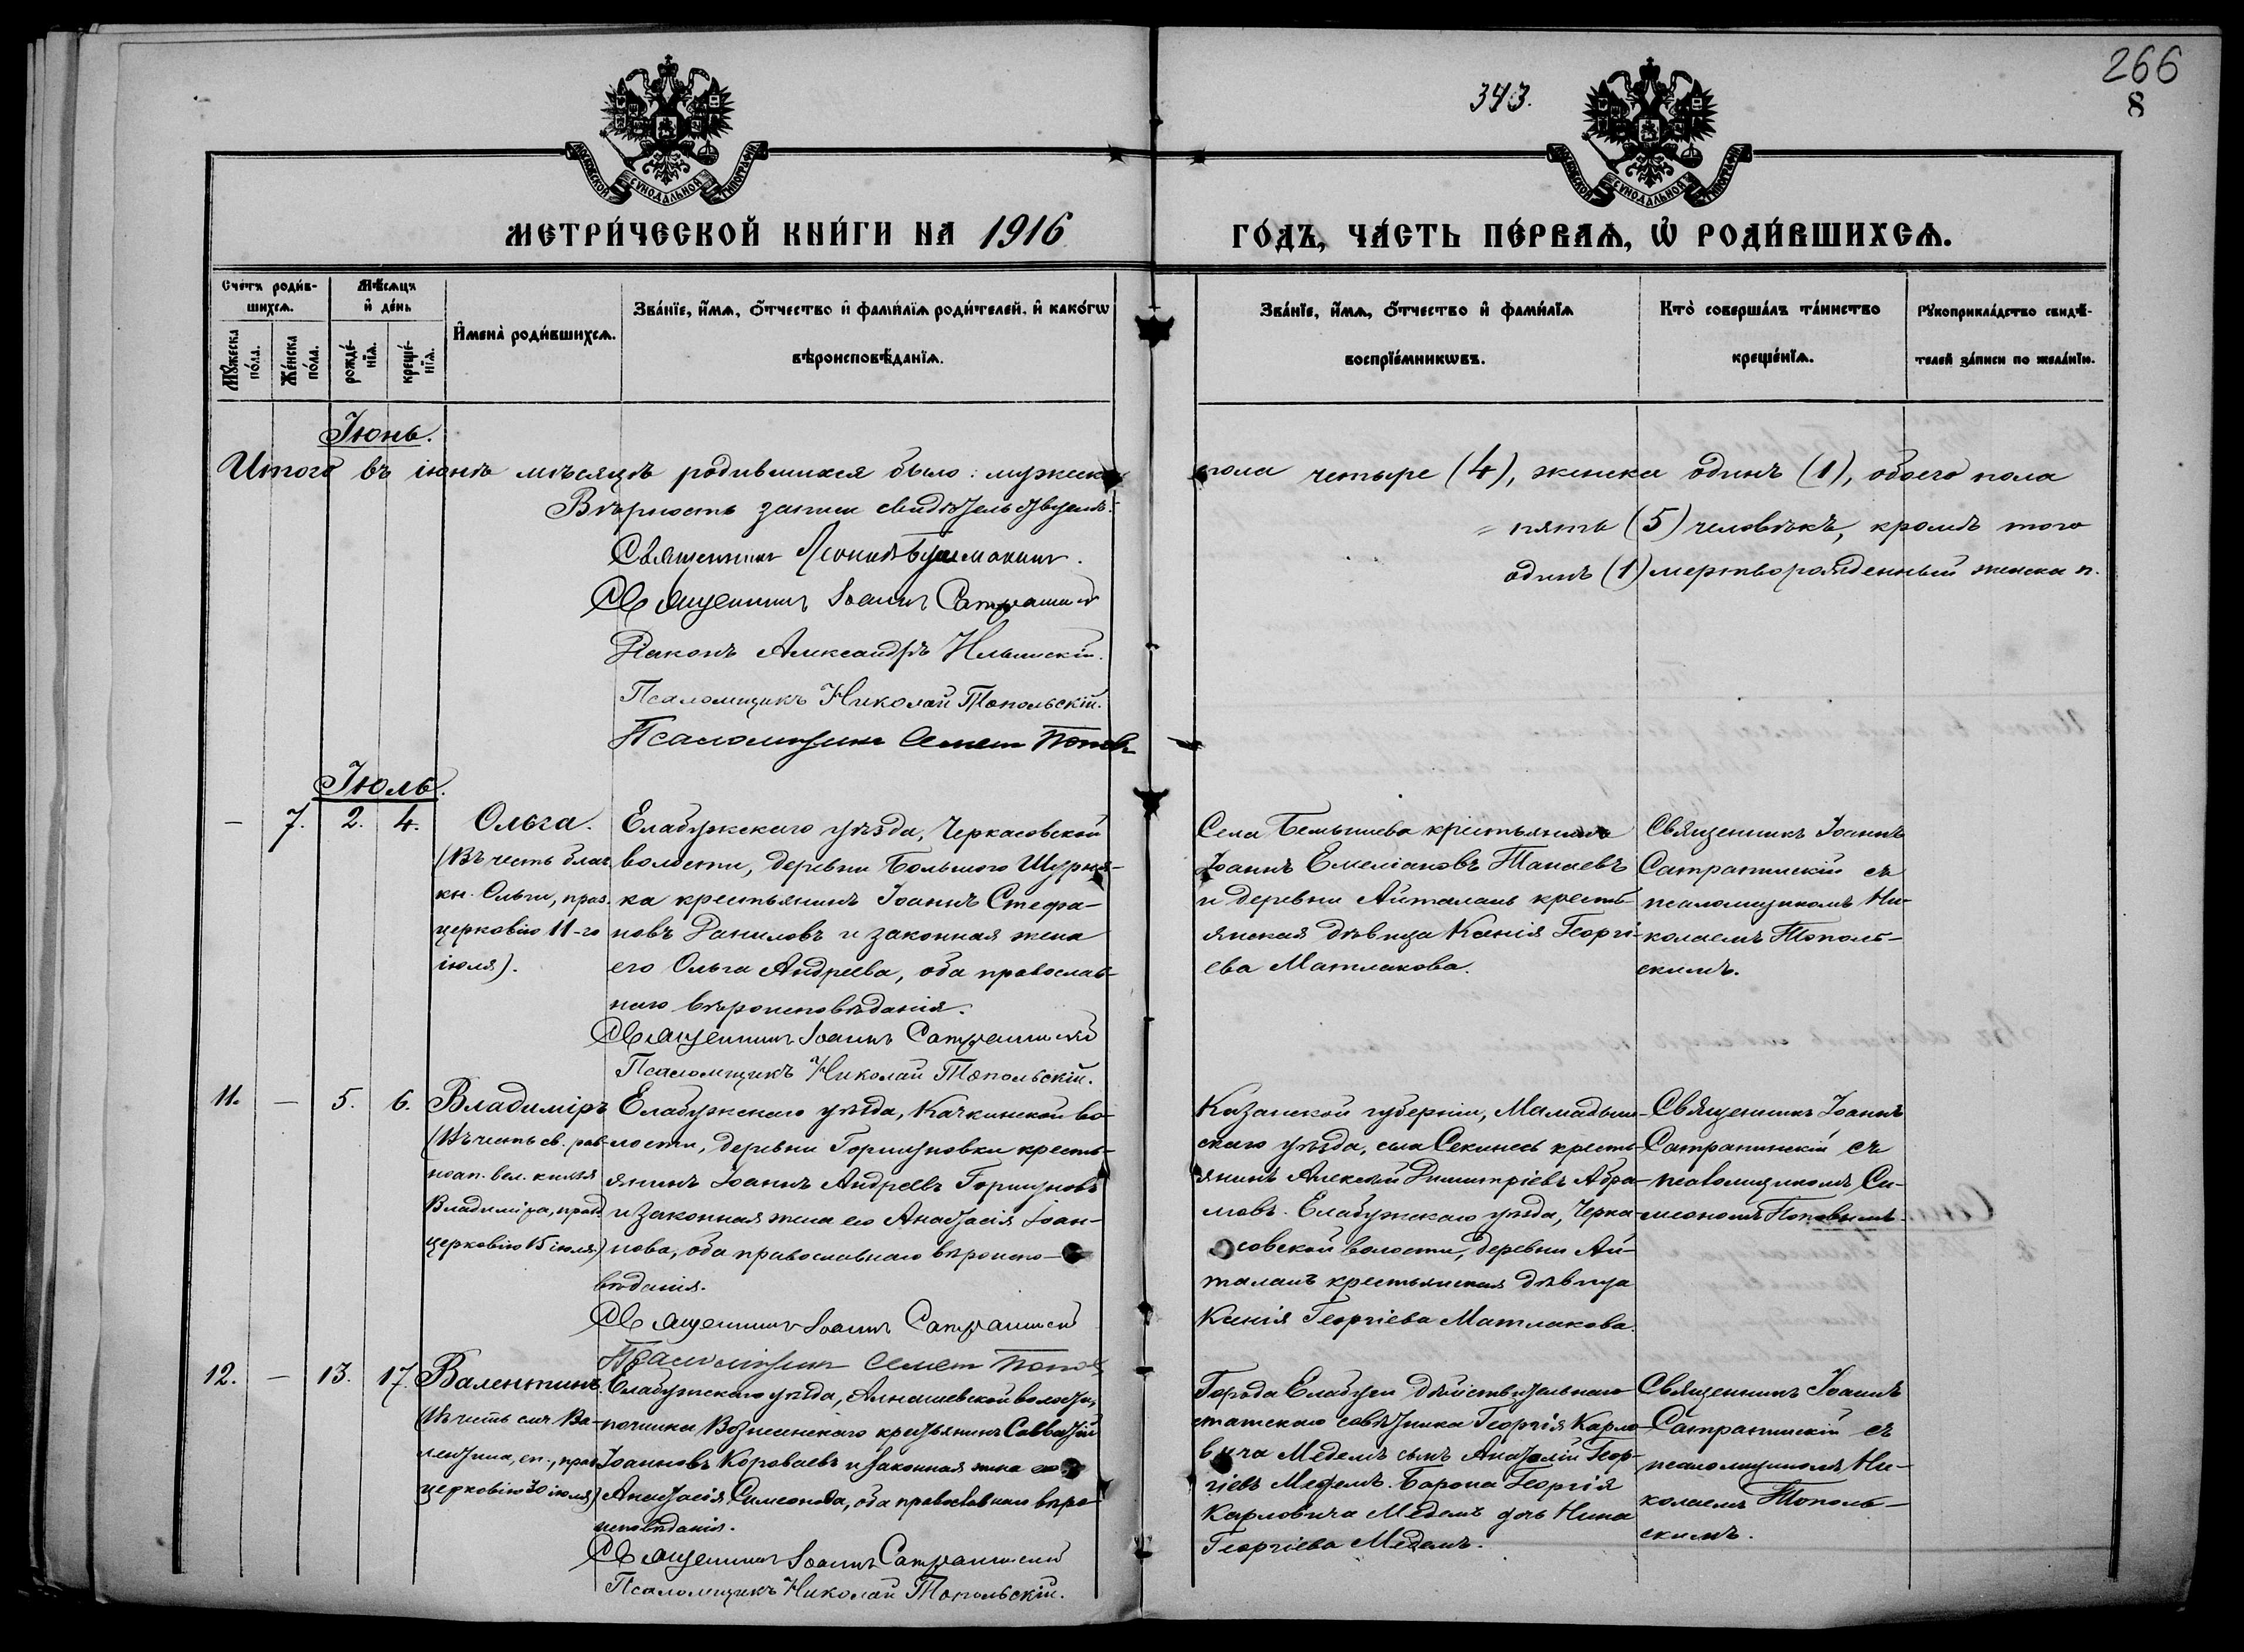 266
8
343.
МОСКОВСКОЙ СѴНОДАЛЬНОЙ ТИПОГРАФІИ
МОСКОВСКОЙ СѴНОДАЛЬНОЙ ТИПОГРАФІИ
МЕТРИ́ЧЕСКОЙ КНИ́ГИ НА 1916
ГО́ДЪ, ЧА́СТЬ ПЕ́РВАѦ, Ѡ҆ РОДИ́ВШИХСѦ.
Сче́тъ роди́в-
шихсѧ.
Мꙋ́жеска
по́ла.
Же́нска
по́ла.
Мѣ́сѧцъ
и҆ де́нь
рожде́-
нїѧ.
креще́-
нїѧ.
И҆мена̀ роди́вшихсѧ.
Зва́нїе, и҆́мѧ, ѻ҆́тчество и҆ фами́лїѧ роди́телей, и҆ како́гѡ
вѣроисповѣ́данїѧ.
Зва́нїе, и҆́мѧ, ѻ҆́тчество и҆ фами́лїѧ
воспрїе́мникѡвъ.
Кто̀ соверша́лъ та́инство
креще́нїѧ.
Рꙋкоприкла́дство свидѣ́-
телей за́писи по жела́нїю.
Іюнь.
Итого въ іюнѣ мѣсяцѣ родившихся было: мужеска
пола четыре (4), женска одинъ (1), обоего пола
Вѣрность записи свидѣтельствуемъ:
= пять (5) человѣкъ, кромѣ того
одинъ (1) мертворожденный женска п.
Священникъ Леонидъ
Священникъ Іоаннъ Сатрапинскій
Діаконъ Александръ Ильинскій.
Псаломщикъ Николай Топольскій.
Псаломщикъ Симеонъ Поповъ
Іюль.
– 7. 2. 4. Ольга.
(Въ честь благ.
кн. Ольги, праз.
церковію 11-го
іюля).
Елабужскаго уѣзда, Черкасовской
волости, деревни Большого Шурня-
ка крестьянинъ Іоаннъ Стефа-
новъ Даниловъ и законная жена
его Ольга Андреева, оба православ-
наго вѣроисповѣданія.
Священникъ Іоаннъ Сатрапинскій
Псаломщикъ Николай Топольскій.
Села крестьянинъ
Іоаннъ Емеліановъ Танаевъ
и деревни Айталанъ кресть-
янская дѣвица Ксенія Георгі-
ева Матлакова.
Священникъ Іоаннъ
Сатрапинскій съ
псаломщикомъ Ни-
колаемъ Тополь-
скимъ.
11. – 5. 6. Владиміръ
(Въ честь св. рав-
ноап. вел. князя
Владиміра, празд.
церковію 15 іюля)
Елабужскаго уѣзда, Качкинской во-
лости, деревни Горшуновки кресть-
янинъ Іоаннъ Андреевъ Горшуновъ
и законная жена его Анастасія Іоан-
нова, оба православнаго вѣроиспо-
вѣданія.
Священникъ Іоаннъ Сатрапинскій
Псаломщикъ Симеонъ Поповъ
Казанской губерніи, Мамадыш-
скаго уѣзда, села Секинесь кресть-
янинъ Алексѣй Димитріевъ Абра-
мовъ. Елабужскаго уѣзда, Черка-
совской волости, деревни Ай-
таланъ крестьянская дѣвица
Ксенія Георгіева Матлакова.
Священникъ Іоаннъ
Сатрапинскій съ
псаломщикомъ Си-
меономъ Поповымъ.
12. – 13. 17. Валентинъ
(Въ честь смч. Ва-
лентина, еп., праз.
церковію 30 іюля)
Елабужскаго уѣзда, Алнашевской волости,
починка Вознесенскаго крестьянинъ Савватій
Іоанновъ Короваевъ и законная жена его
Анастасія Симеонова, оба православнаго вѣро-
исповѣданія.
Священникъ Іоаннъ Сатрапинскій
Псаломщикъ Николай Топольскій.
Города Елабуги дѣйствительнаго
статскаго совѣтника Георгія Карло-
вича Медемъ сынъ Анатолій Геор-
гіевъ Медемъ. Барона Георгія
Карловича Медемъ дочь Нина
Георгіева Медемъ.
Священникъ Іоаннъ
Сатрапинскій съ
псаломщикомъ Ни-
колаемъ Тополь-
скимъ.